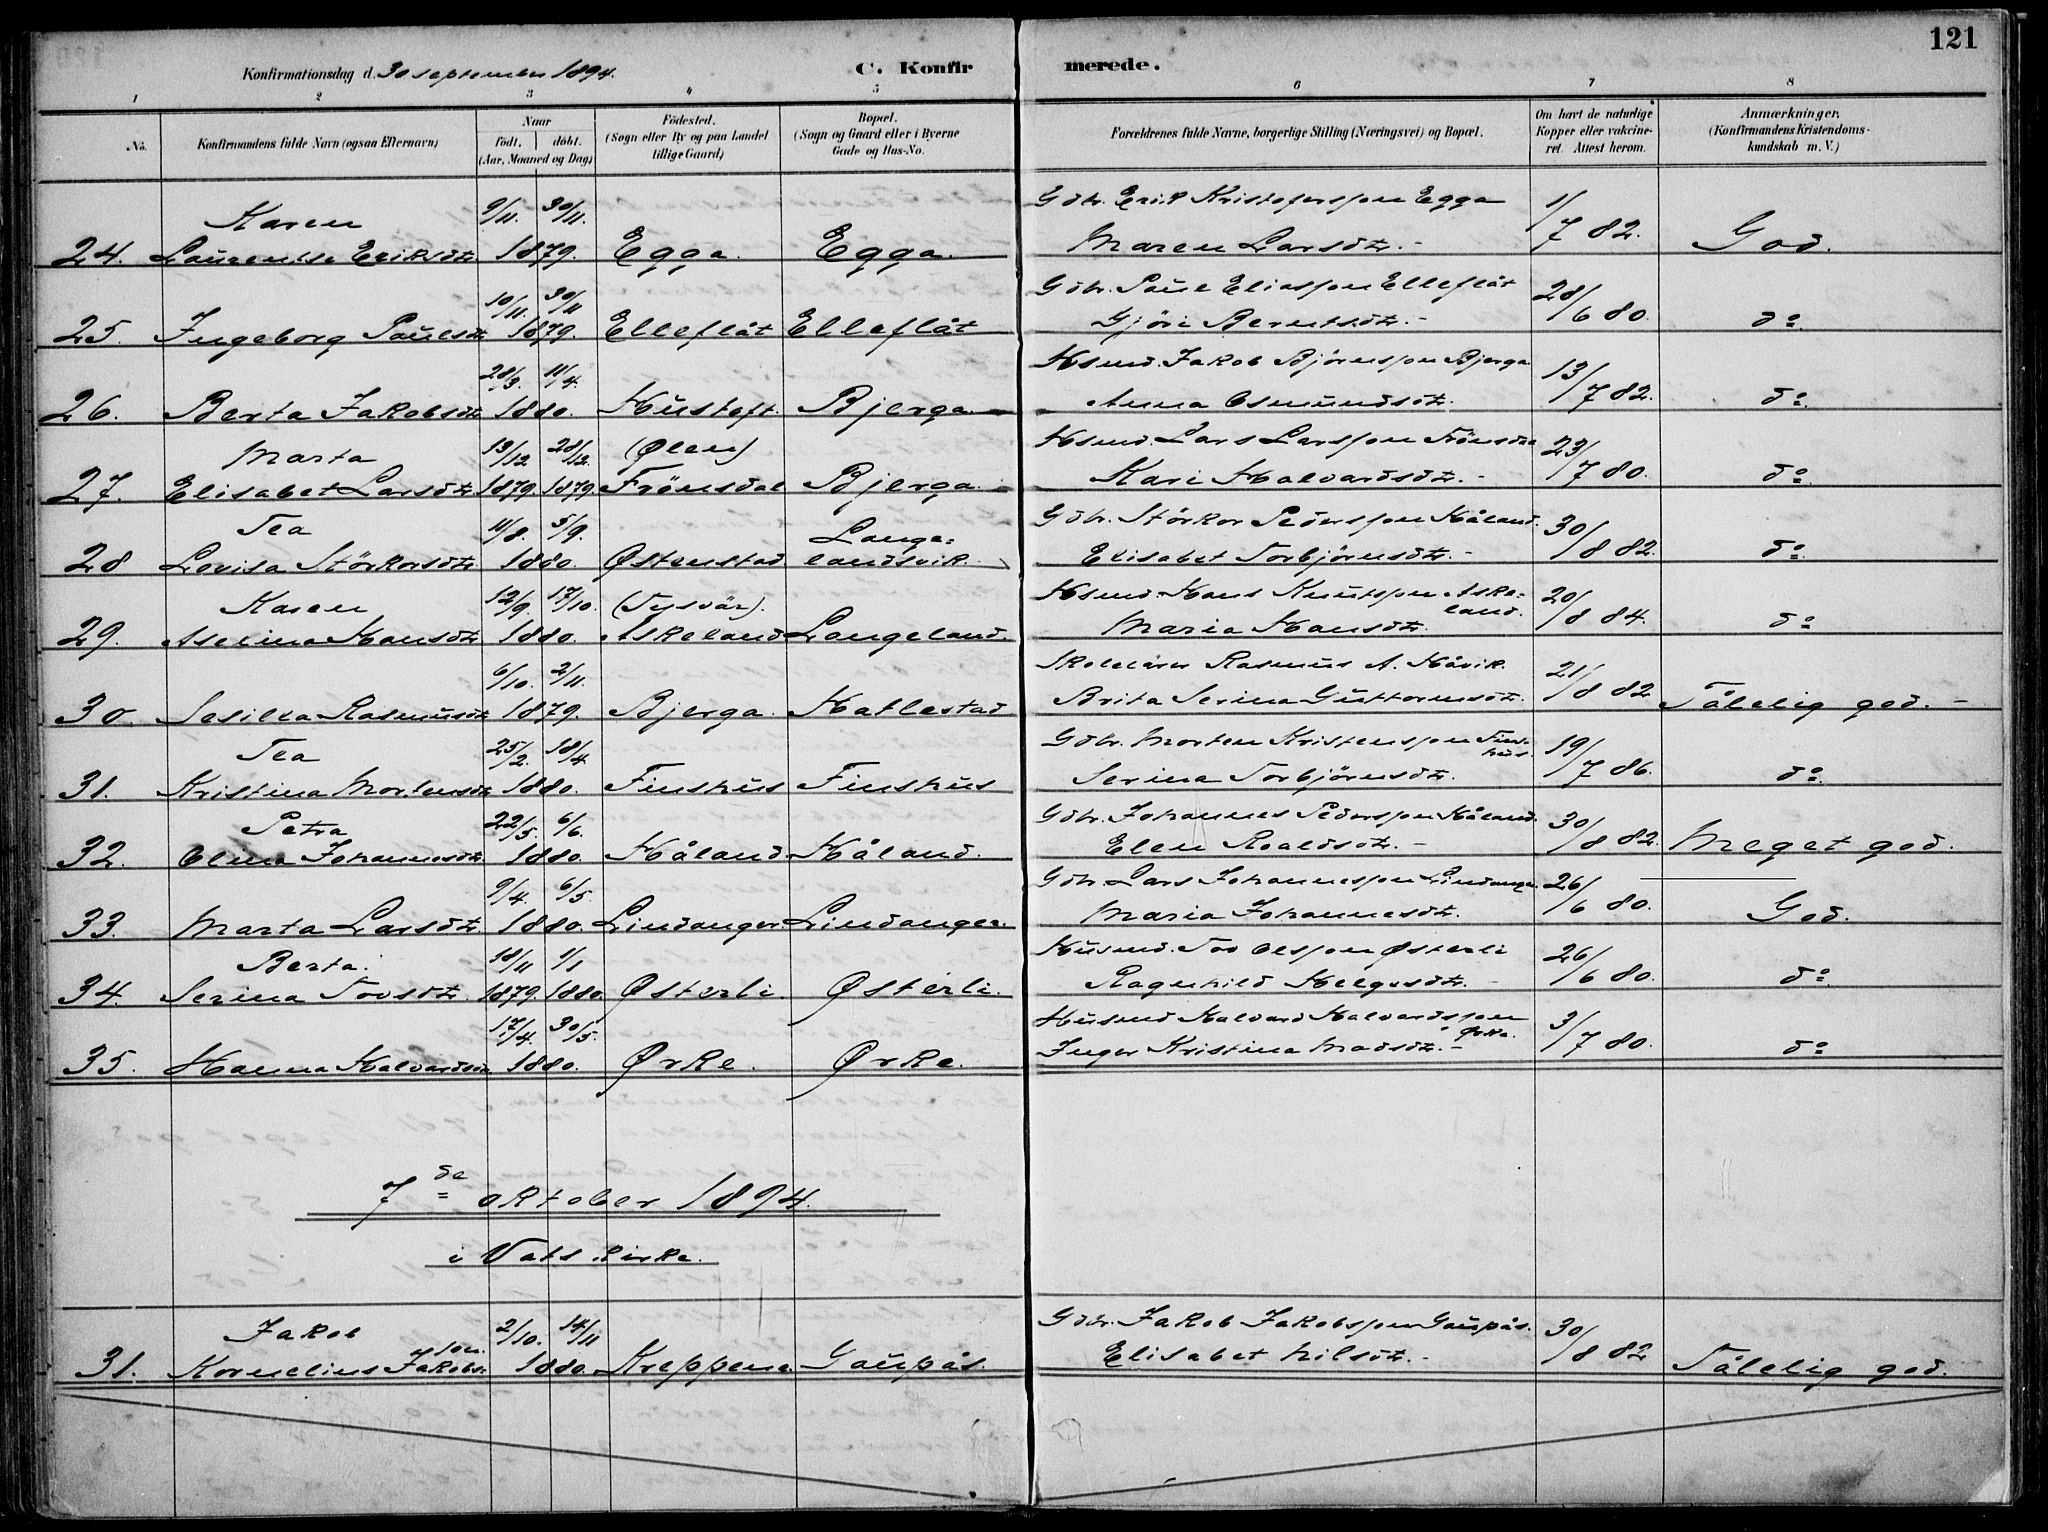 121
Konfirmationsdag d. 30 september 1894. C. Konfirmerede.
1 2 3 4 5 6 7 8
No. Konfirmandens fulde Navn (ogsaa Efternavn) Naar født. døbt. (Aar, Maaned og Dag) Fødested. (Sogn eller By og paa Landet tillige Gaard) Bopæl. (Sogn og Gaard eller i Byerne Gade og Hus-No. Forældrenes fulde Navne, borgerlige Stilling (Næringsvei) og Bopæl. Om havt de naturlige Kopper eller vakcineret. Attest herom. Anmærkninger. (Konfirmandens Kristendomskundskab m. V.)
Karen 9/11. 30/11. Gdbr. Erik Kristofersson Egga 1/7 82.
24. Laurentse Eriksdtr. 1879. Egga. Egga. Maren Larsdtr. God.
10/11. 30/11 Gdbr. Paul Eliasson Elleflåt 28/6 80.
25. Ingeborg Paulsdt 1879. Elleflåt Elleflåt Gjöri Berntsdtr. do.
28/3. 11/4. Hsmd. Jakob Björnsson Bjerga 13/7 82.
26. Berta Jakobsdtr 1880. Hustoft. Bjerga. Anna Osmundsdtr. do.
Marta 13/12 28/12. (Ølen) Hsmd. Lars Larsson 23/7 80.
27. Elisabet Larsdtr 1879. 1879. Frönsdal Bjerga. Kari Halvardsdtr. do.
Tea 11/8. 5/9. Lange- Gdbr. Störkor Pedersson Håland. 30/8 82.
28 Lovisa Störkorsdtr 1880. Østenstad landsvik. Elisabet Torbjörnsdtr. do.
Karen 12/9. 17/10. (Tysvär). Hsmd. Hans Knutsson Aske- 20/8 84.
land.
29. Aselina Hansdtr 1880. Askeland Langeland. Maria Hansdtr. do
6/10. 2/11. Skolelärer Rasmus A. Håvik. 21/8 82
30. Sesilia Rasmusdt 1879. Bjerga. Hatlestad Brita Serina Guttormsdtr. Tålelig god.
Tea 25/2. 18/4 Gdbr. Morten Kristensson Fins- 19/7 86.
hus.
31. Kristina Mortensdt 1880. Finshus Finshus Serina Torbjörnsdtr. do.
Petra 22/5. 6/6. Gdbr. Johannes Pedersson Håland. 30/8 82.
32. Olena Johannesdt 1880. Håland. Håland. Elen Roaldsdtr. Meget god.
9/4. 6/5. Gdbr. Lars Johannesson Lindanger 26/6 80.
33. Marta Larsdtr 1880. Lindanger Lindanger. Maria Johannesdtr. God.
Berta. 18/11 1/1 Husmd. Tov Olsson Østerli 26/6 80.
34. Serina Tovsdtr. 1879. 1880. Østerli. Østerli. Ragnhild Helgesdtr. do.
17/4. 30/5. Husmd Halvard Halvardsson 3/7 80.
Ørke.
35. Hanna Halvardsdt 1880. Ørke. Ørke. Inger Kristina Madsdtr. do
7de oktober 1894.
i Vats kirke.
Jakob 2/10. 14/11 Gdbr. Jakob Jakobsson Gaupås. 30/8 82
son.
31. Kornelius Jakobs- 1880. Kreppene Gaupås. Elisabet Nilsdtr. Tålelig god.